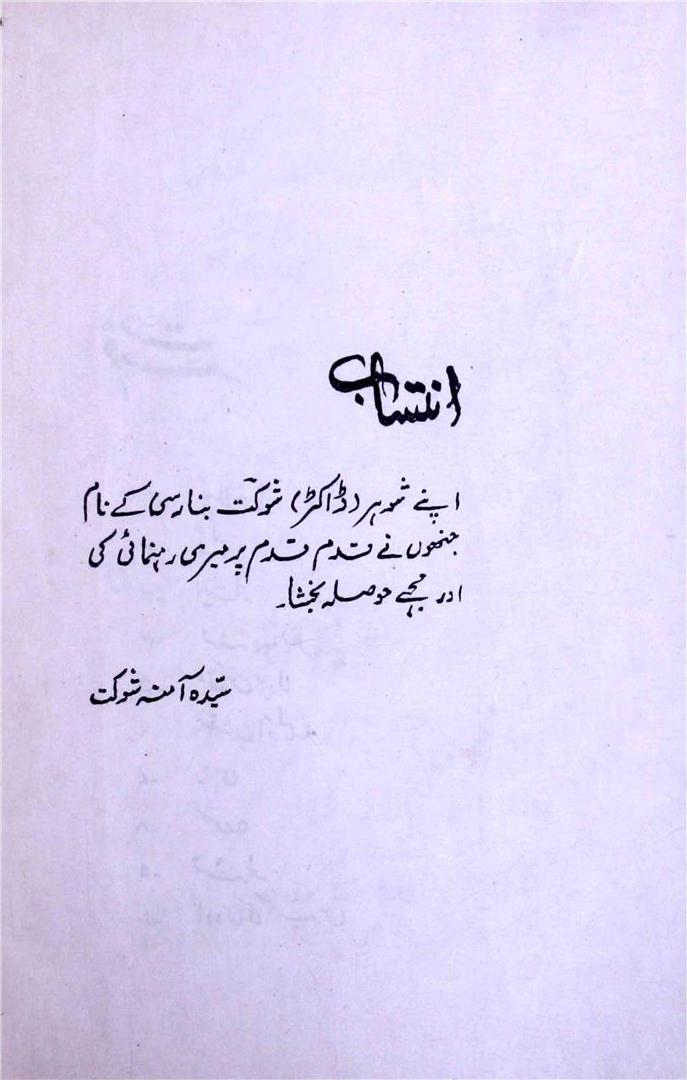 انتساب
اپنے شوہر (ڈاکٹر) شوکت بنارسی کے نام
جنھوں نے قدم قدم پر میری رہنمائی کی
اور مجھے حوصلہ بخشا۔
سیّدہ آمنہ شوکت